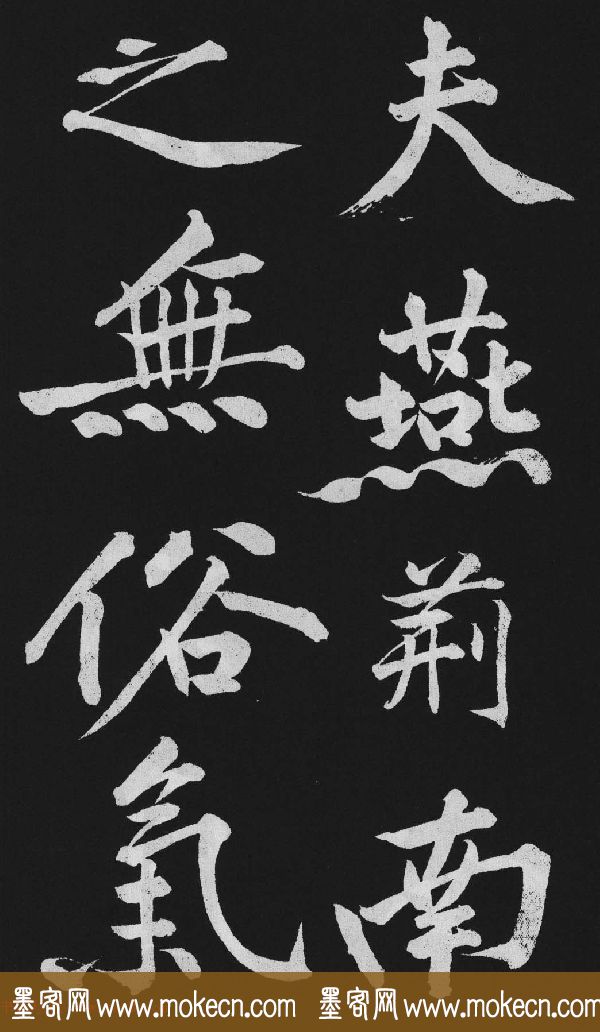 夫燕荆南
之無俗氣
墨客网 www.mokecn.com 墨客网 www.mokecn.com